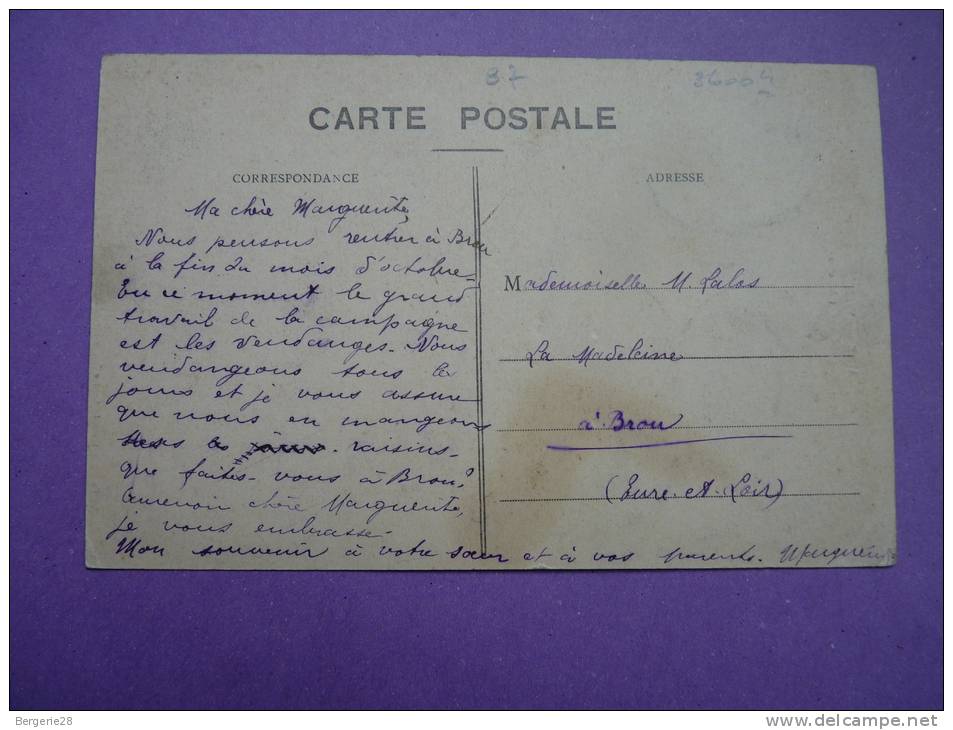 37
36004
CARTE POSTALE
CORRESPONDANCE
Ma chère Marguerite,
Nous pensons rentrer à Brou
à la fin du mois d'octobre.
En ce moment le grand
travail de la campagne
est les vendanges. Nous
vendangeons tous les
jours et je vous assure
que nous en mangeons
raisins.
que faites-vous à Brou?
Aurevoir chère Marguerite,
je vous embrasse.
Mon souvenir à votre sœur et à vos parents. Marguerite
ADRESSE
Mademoiselle M. Lalos
La Madeleine
à Brou
(Eure-et-Loir)
Bergerie28
www.delcampe.net